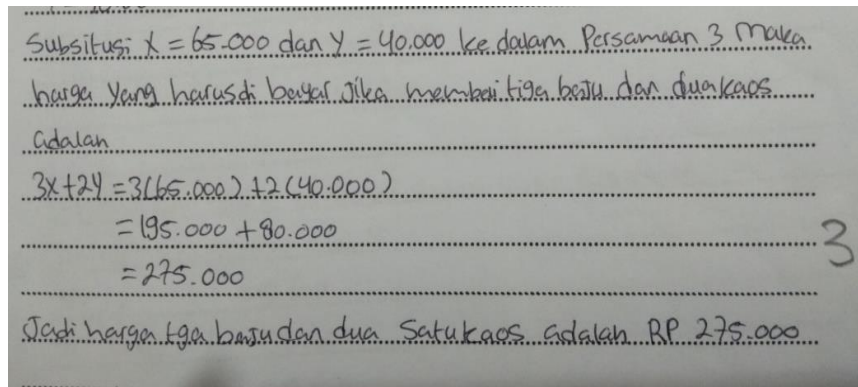 Subsitusi X = 65.000 dan Y = 40.000 ke dalam Persamaan 3 Maka
harga Yang harus di bayar Jika membeli tiga baju dan dua kaos
adalah
3x+2y = 3(65.000) +2(40.000)
= 195.000 + 80.000
3
= 275.000
Jadi harga tga baju dan dua Satu kaos adalah RP 275.000